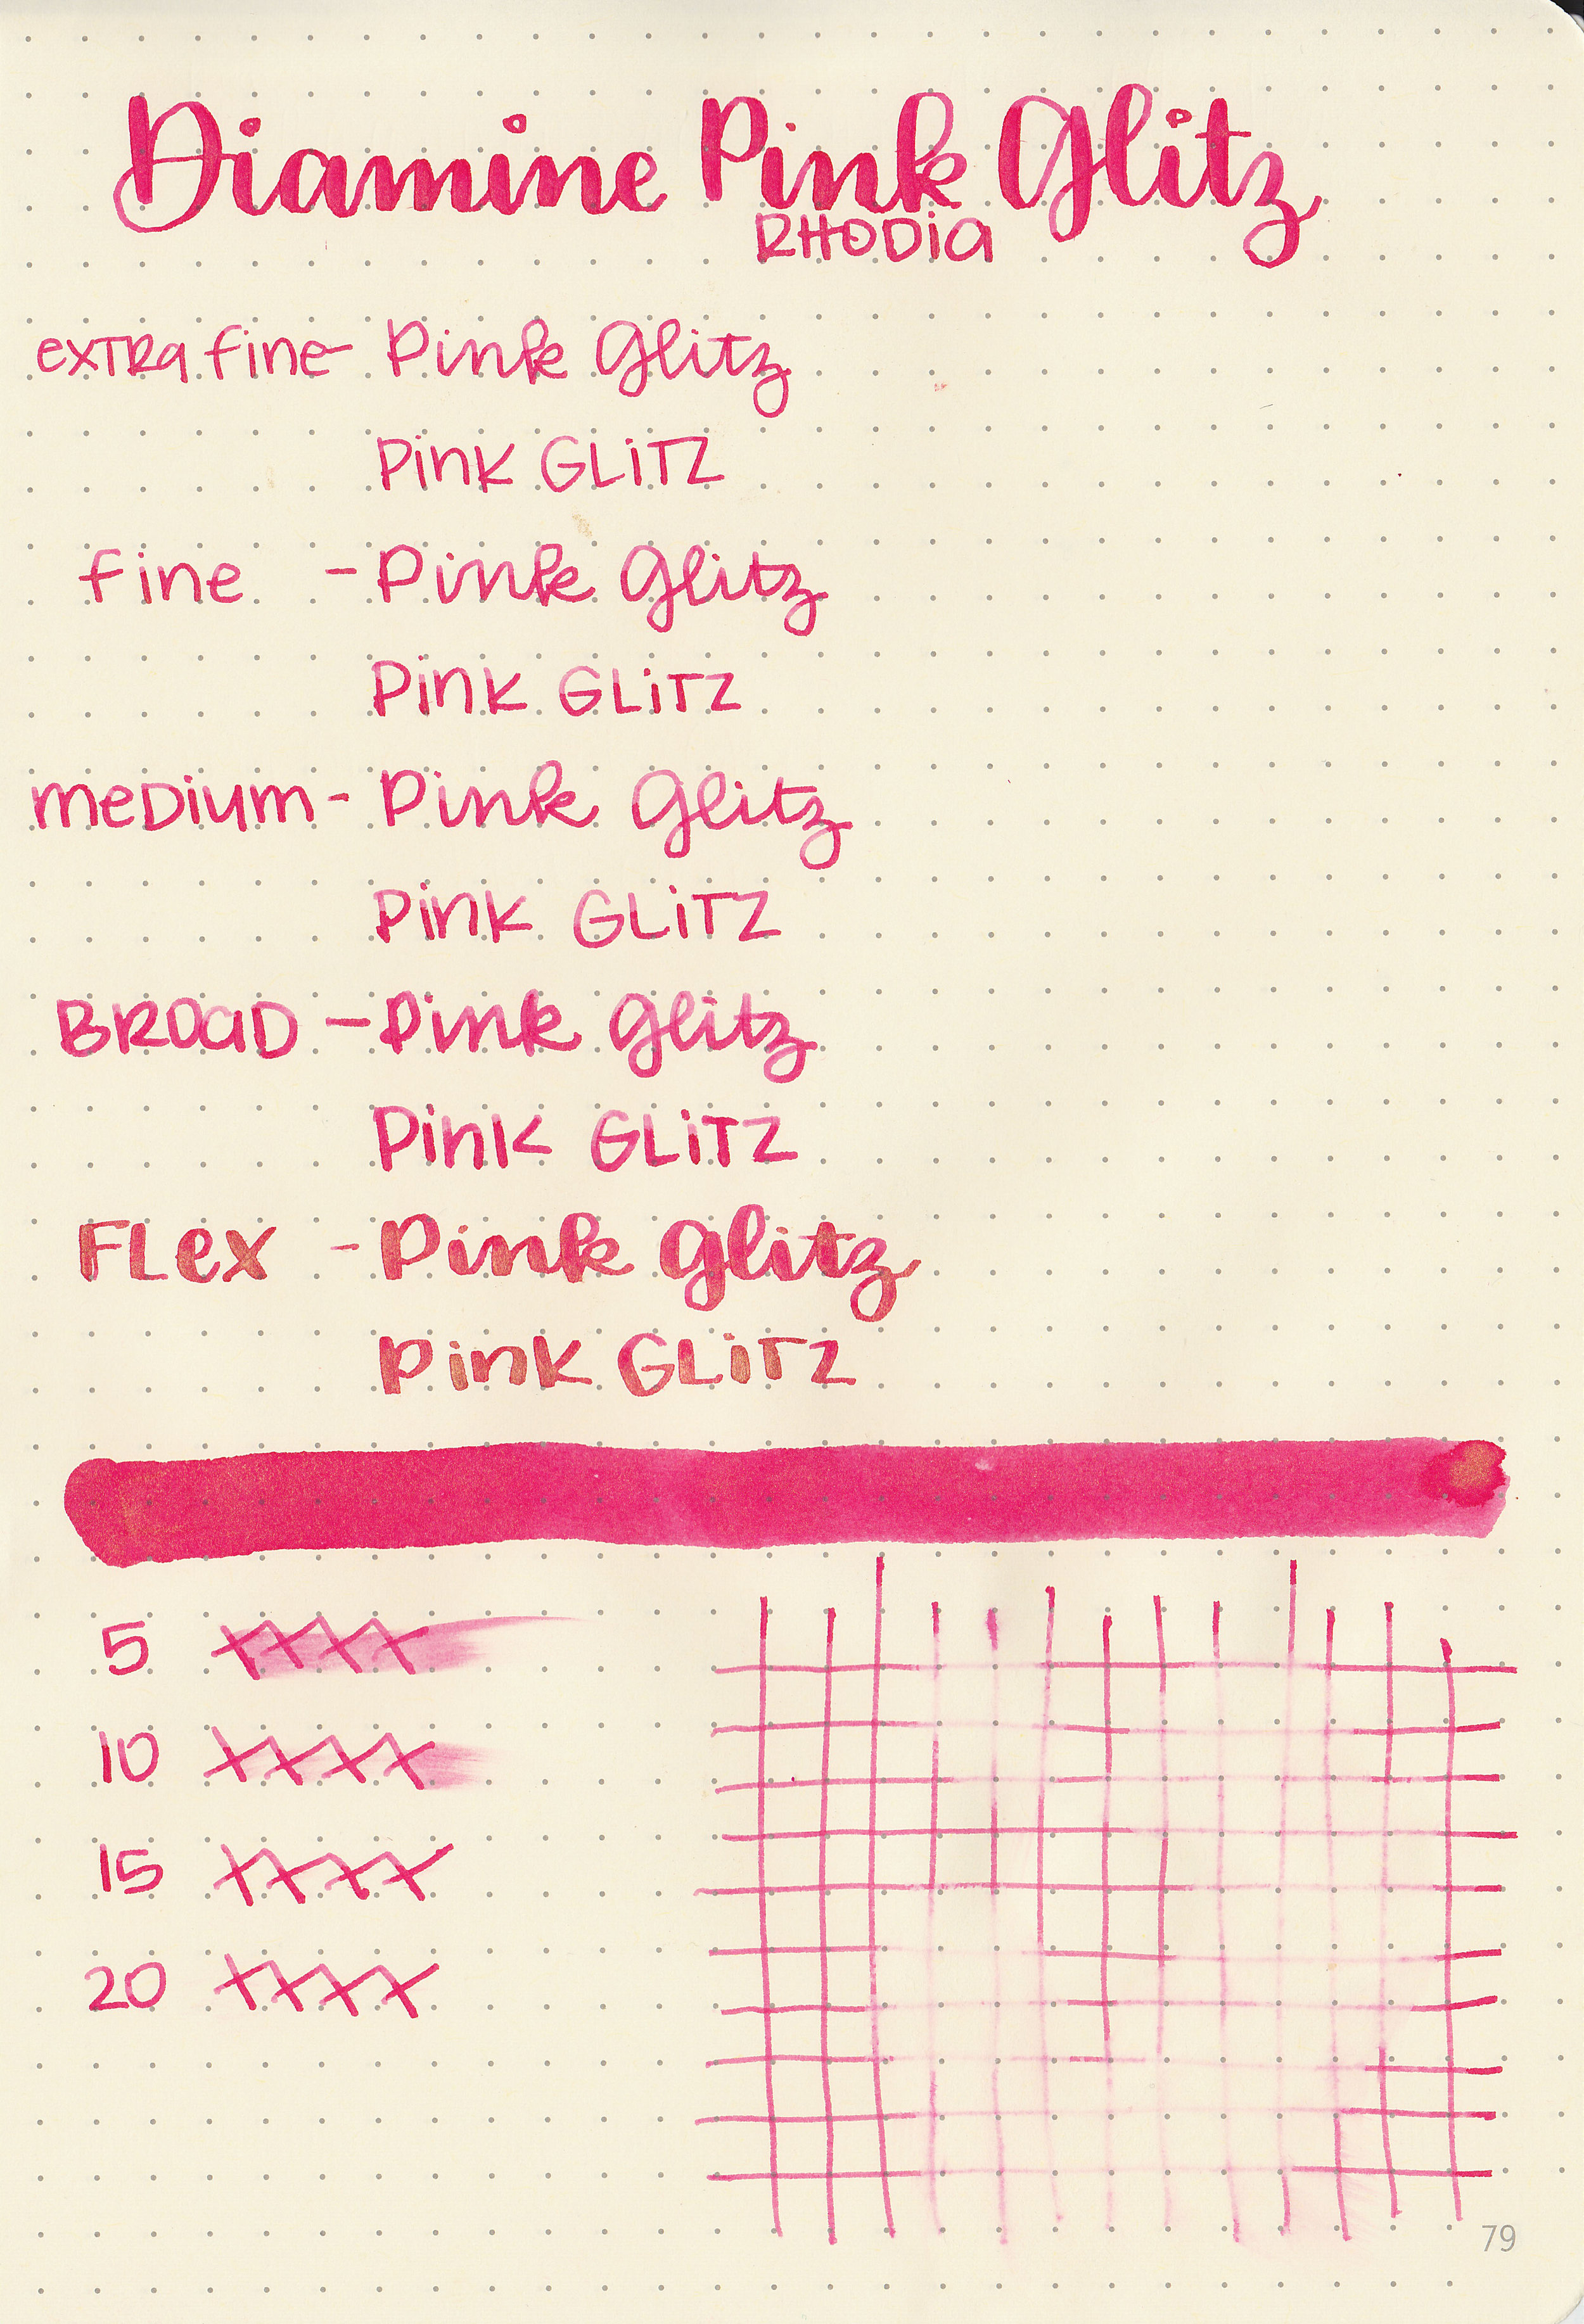 Diamine Pink Glitz
RHODIA
extra fine- Pink Glitz
PINK GLITZ
fine - Pink Glitz
PINK GLITZ
medium - Pink Glitz
PINK GLITZ
BROAD - Pink Glitz
PINK GLITZ
FLex - Pink Glitz
PINK GLITZ
5 XXXX
10 XXXX
15 XXXX
20 XXXX
79